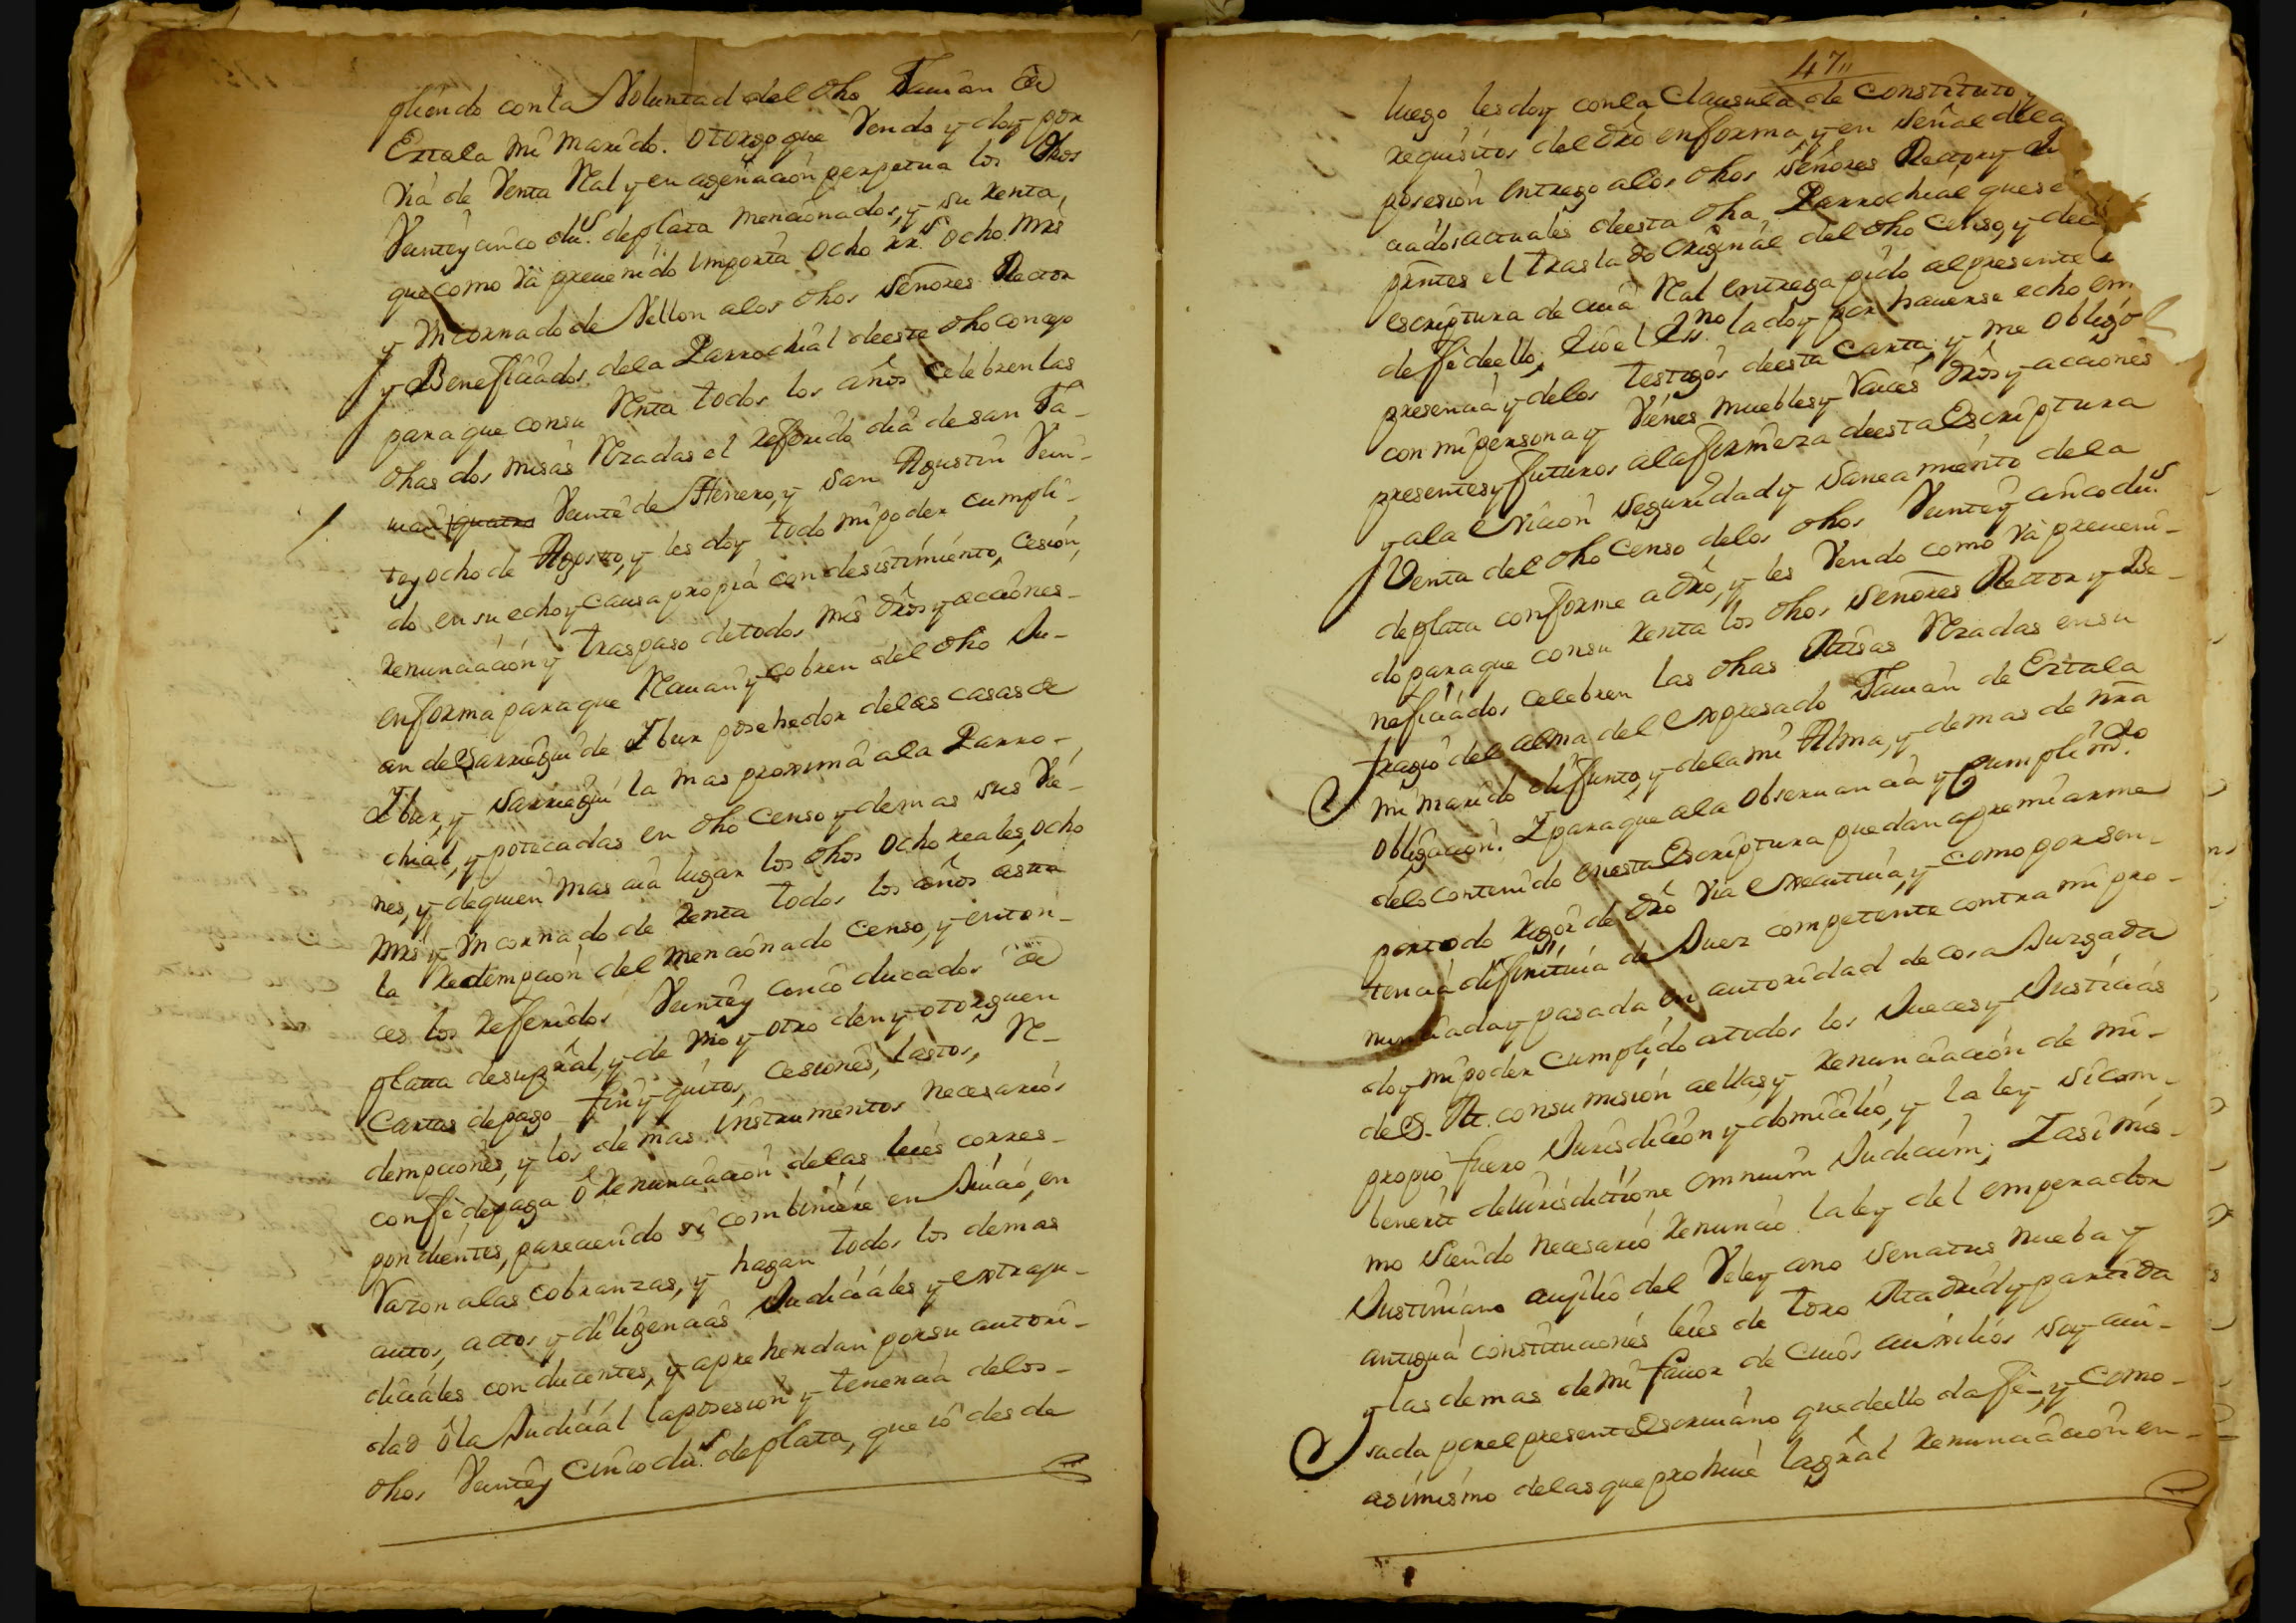 pliendo con la Voluntad del dho Fauian de
Eztala mi marido. otorgo que Vendo y doy por
via de Venta Ral y en agenaçion perpetua los dhos
Veinte y cinco du.s de plata mencionados, y su renta,
que como va preuenido importa ocho rr.s ocho mrs
y Un cornado de Vellon a los dhos Señores Rector
y Beneficiados de la Parrochial de este dho conzejo
para que con su Renta todos los años celebren las
dhas dos misas Rzadas el referido dia de san Fa-
uian quatro Veinte de Henero, y san Agustin Vein-
te y ocho de Agosto, y les doy todo mi poder cumpli-
do en su echo y causa propia con desistimiento, cesion,
renunciacion y traspaso de todos mis dros y acciones-
en forma para que Reciuan y cobren del dho Ju-
an de Sarriegui de Ybur posehedor de las casas de
Ybur, y Sarriegui la mas proxima a la Parro-
chial, ypotecadas en dho censo y demas sus Vie-
nes, y de quien mas aia lugar los dhos ocho reales, ocho
mrs y Un cornado de renta todos los años asta
la redempcion del mencionado censo, y enton-
ces los referidos Veinte y cinco ducados de
plata de su pral, y de Vno y otro den y otorguen
Cartas de pago finy quitos, cesiones, lastos, Re-
dempciones, y los demas instrumentos necesarios
con fe de paga ô renunciacion de las leies corres-
pondientes, pareciendo si combiniere en Juicio, en
Razon a las cobranzas, y hagan todos los demas
autos, actos y diligencias Judiciales y extraju-
diciales conducentes, y aprehendan por su autori-
dad ô la Judicial la posesion y tenencia de los-
dhos Veinte y Cinco du.s de plata, que io desde
47
luego les doy con la Clausula de Constituto y
requisitos del dro en forma, y en señal de la
posesion entrego a los dhos Señores Rector y
ciados actuales de esta dha Parrochial que se
pntes el traslado original del dho Censo, y de
escriptura de cuia Ral entrega pido al presente
de fe de ello; E io el Ess.no la doy por hauerse echo en
presencia y de los testigos de esta Carta, y me obligo
con mi persona y Vienes muebles y Raices dros y acciones
presentes y futuros a la firmeza de esta Escriptura
y a la eviccion seguridad y saneamiento de la
Venta del dho Censo de los dhos Veinte y cinco du.s
de plata conforme a dro, y les Vendo como va preueni-
do para que con su renta los dhos Señores Rector y Be-
neficiados celebren las dhas Misas Rzadas en su
fragio del alma del expresado Fauian de Eztala
mi marido difunto, y de la mi Alma, y demas de nra
obligacion. Y para que a la obseruancia y cumplim.to
de lo contenido en esta Escriptura puedan apremiarme
por todo rigor de dro via executiua, y como por sen-
tencia difinitiuia de Juez competente contra mi pro-
nunciada y pasada en autoridad de cosa Juzgada
doy mi poder cumplido a todos los Jueces y Justicias
de S. M. con sumision a ellas, y renunciacion de mi-
propio fuero Jurisdicion y domicilio, y la ley si com-
benerit de Jurisdictione omnium Judicum; Y asi mis-
mo siendo necesario renuncio la ley del emperador
Justiniano auxilio del Veleyano Senatus nueba y
antigua constituciones leies de toro Madrid y partida
y las demas de mi fauor de cuios auxilios soy aui-
sada por el presente Escriuano que de ello da fe, y como-
asimismo de las que prohiue la gral renunciacion en-